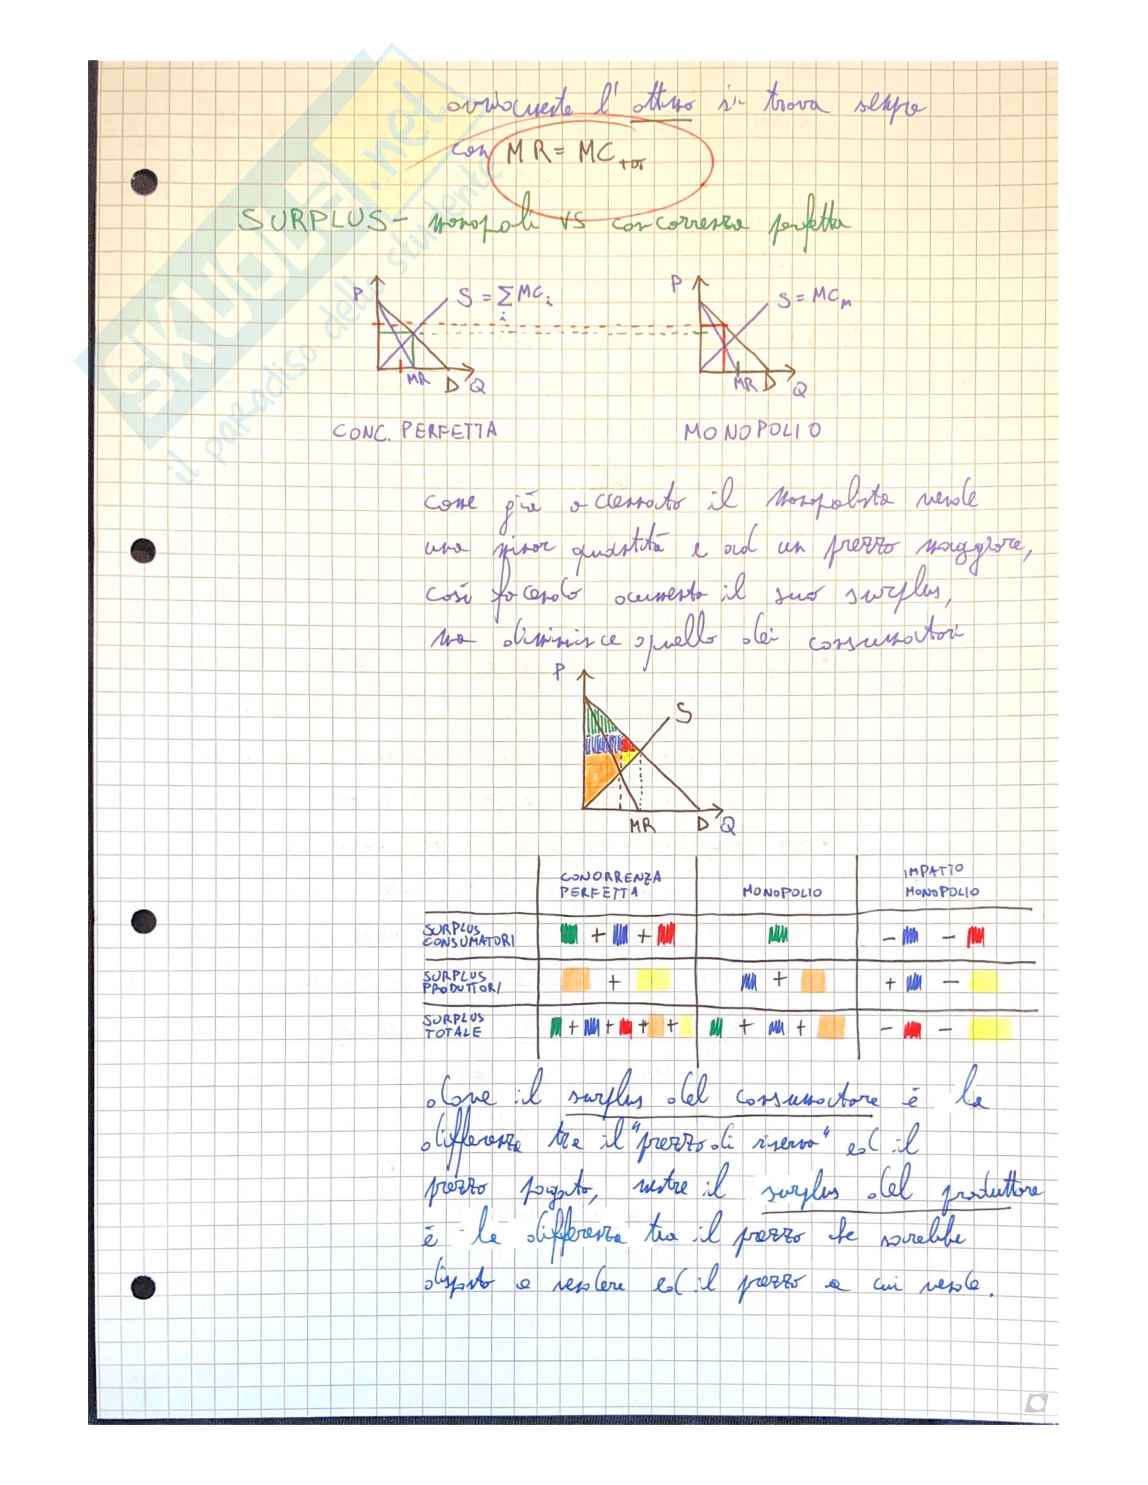 ovviamente l'ottimo si trova sempre
con MR = MC tot
SURPLUS - monopoli VS concorrenza perfetta
P
S = Σ MCi
i
MR D Q
CONC. PERFETTA
P
S = MCM
MR D Q
MONOPOLIO
come già accennato il monopolista vende
una minor quantità e ad un prezzo maggiore,
così facendo aumenta il suo surplus,
ma diminuisce quello dei consumatori
P
S
MR D Q
CONORRENZA PERFETTA
MONOPOLIO
IMPATTO MONOPOLIO
SURPLUS CONSUMATORI + + - -
SURPLUS PRODUTTORI + + + -
SURPLUS TOTALE + + + + + + - -
dove il surplus del consumatore è la
differenza tra il "prezzo di riserva" ed il
prezzo pagato, mentre il surplus del produttore
è la differenza tra il prezzo che sarebbe
disposto a vendere ed il prezzo a cui vende.
SKUOLA.net
il paradiso dello studente